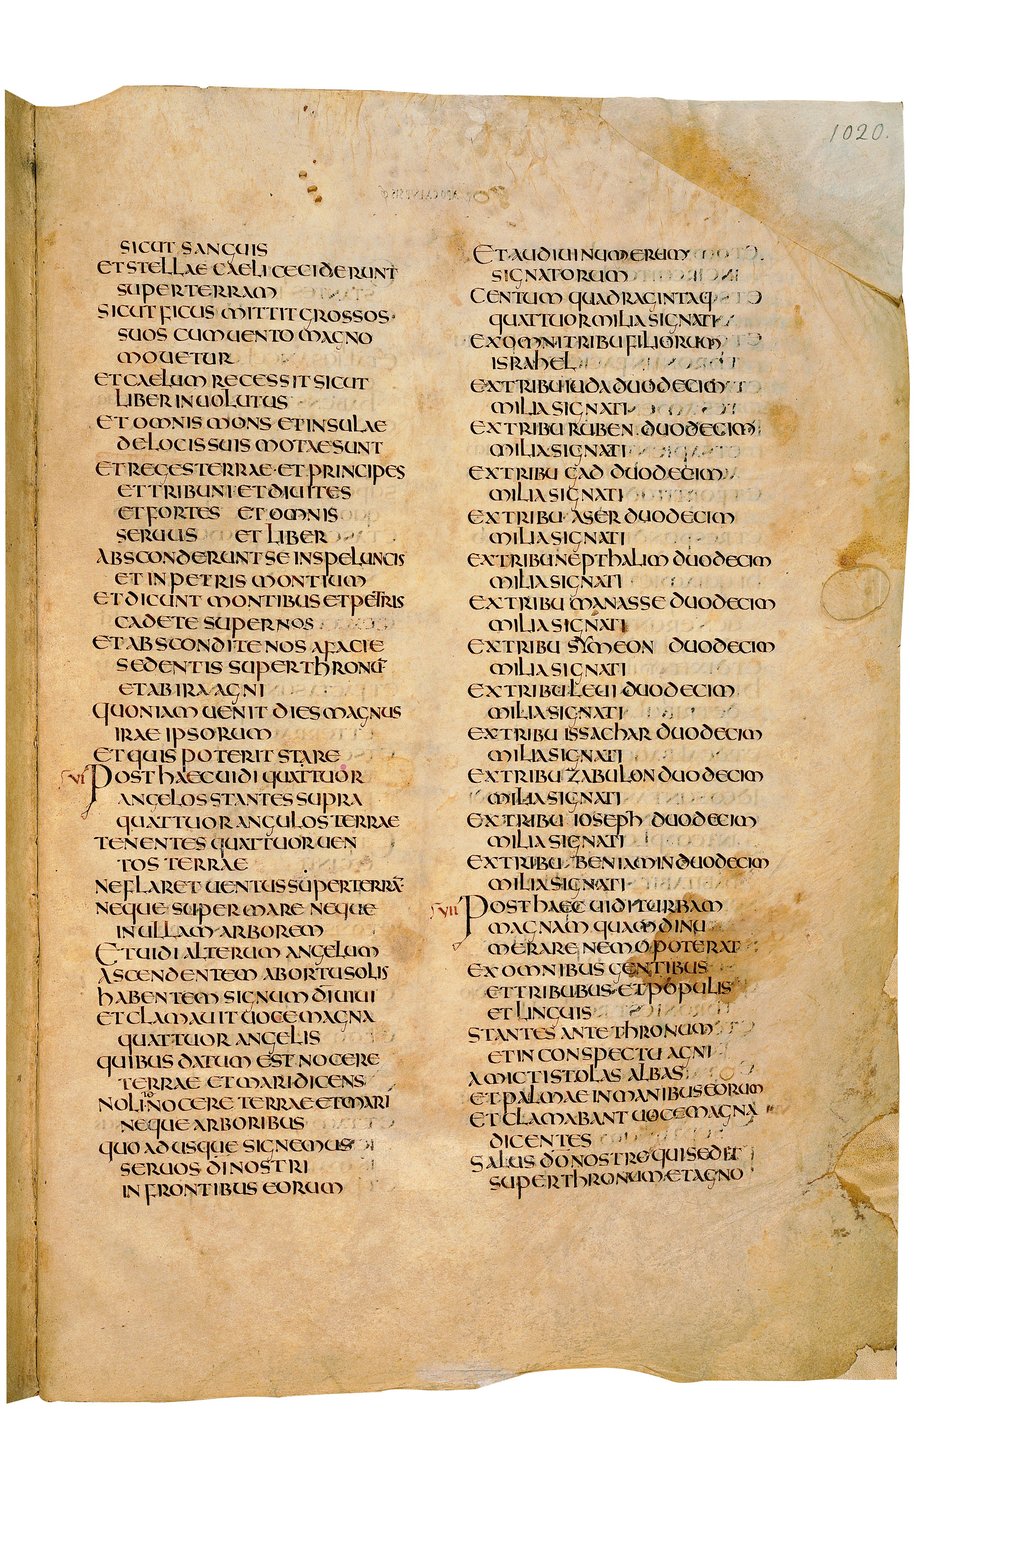 1020.
APOCALYPSIS
SICUT SANGUIS
ET STELLAE CAELI CECIDERUNT
SUPER TERRAM
SICUT FICUS MITTIT GROSSOS
SUOS CUM UENTO MAGNO
MOUETUR
ET CAELUM RECESSIT SICUT
LIBER INUOLUTUS
ET OMNIS MONS ET INSULAE
DE LOCIS SUIS MOTAE SUNT
ET REGES TERRAE · ET PRINCIPES
ET TRIBUNI ET DIUITES
ET FORTES ET OMNIS
SERUUS ET LIBER
ABSCONDERUNT SE IN SPELUNCIS
ET IN PETRIS MONTIUM
ET DICUNT MONTIBUS ET PETRIS
CADETE SUPER NOS
ET ABSCONDITE NOS A FACIE
SEDENTIS SUPER THRONŪ
ET AB IRA AGNI
QUONIAM UENIT DIES MAGNUS
IRAE IPSORUM
ET QUIS POTERIT STARE
VI POST HAEC UIDI QUATTUOR
ANGELOS STANTES SUPRA
QUATTUOR ANGULOS TERRAE
TENENTES QUATTUOR UEN
TOS TERRAE
NE FLARET UENTUS SUPER TERRĀ
NEQUE SUPER MARE NEQUE
IN ULLAM ARBOREM
ET UIDI ALTERUM ANGELUM
ASCENDENTEM AB ORTU SOLIS
HABENTEM SIGNUM DĪ UIUI
ET CLAMAUIT UOCE MAGNA
QUATTUOR ANGELIS
QUIBUS DATUM EST NOCERE
TERRAE ET MARI DICENS
NOLITE NOCERE TERRAE ET MARI
NEQUE ARBORIBUS
QUOADUSQUE SIGNEMUS
SERUOS DĪ NOSTRI
IN FRONTIBUS EORUM
ET AUDIUI NUMERUM
SIGNATORUM
CENTUM QUADRAGINTA Q
QUATTUOR MILIA SIGNATI
EX OMNI TRIBU FILIORUM
ISRAHEL
EX TRIBU IUDA DUODECIM
MILIA SIGNATI
EX TRIBU RUBEN DUODECIM
MILIA SIGNATI
EX TRIBU GAD DUODECIM
MILIA SIGNATI
EX TRIBU ASER DUODECIM
MILIA SIGNATI
EX TRIBU NEPTHALIM DUODECIM
MILIA SIGNATI
EX TRIBU MANASSE DUODECIM
MILIA SIGNATI
EX TRIBU SYMEON DUODECIM
MILIA SIGNATI
EX TRIBU LEUI DUODECIM
MILIA SIGNATI
EX TRIBU ISSACHAR DUODECIM
MILIA SIGNATI
EX TRIBU ZABULON DUODECIM
MILIA SIGNATI
EX TRIBU IOSEPH DUODECIM
MILIA SIGNATI
EX TRIBU BENIAMIN DUODECIM
MILIA SIGNATI
VII POST HAEC UIDI TURBAM
MAGNAM QUAM DINU
MERARE NEMO POTERAT
EX OMNIBUS GENTIBUS
ET TRIBUBUS · ET POPULIS
ET LINGUIS
STANTES ANTE THRONUM
ET IN CONSPECTU AGNI
AMICTI STOLAS ALBAS
ET PALMAE IN MANIBUS EORUM
ET CLAMABANT UOCE MAGNA
DICENTES
SALUS DŌ NOSTRO QUI SEDET
SUPER THRONUM ET AGNO